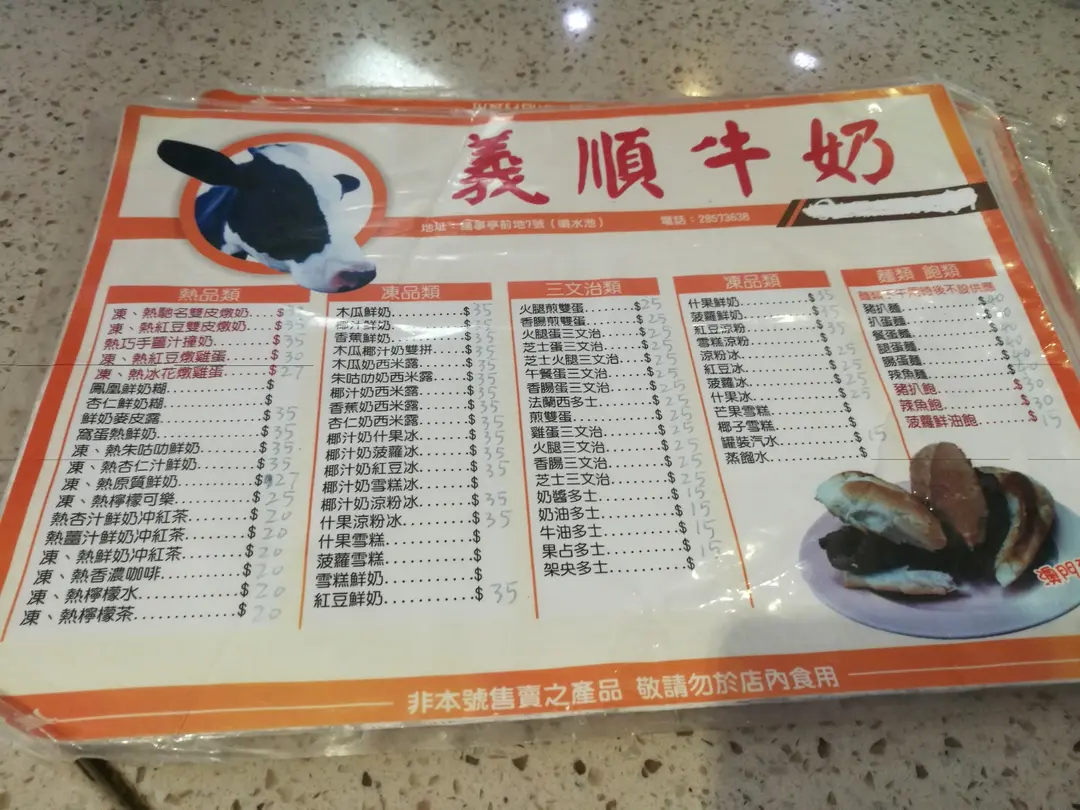 義順牛奶
電話：28573638
熱品類
凍、熱馳名雙皮燉奶......$35
凍、熱紅豆雙皮燉奶.....$35
熱巧手薑汁撞奶............$35
凍、熱紅豆燉雞蛋........$30
凍、熱冰花燉雞蛋........$27
鳳凰鮮奶糊..................$
杏仁鮮奶糊..................$
鮮奶麥皮露..................$35
窩蛋熱鮮奶..................$35
凍、熱朱咕叻鮮奶.......$35
凍、熱杏仁汁鮮奶.......$35
凍、熱原質鮮奶...........$27
凍、熱檸檬可樂...........$25
熱杏汁鮮奶冲紅茶........$20
熱薑汁鮮奶冲紅茶........$20
凍、熱鮮奶冲紅茶........$20
凍、熱香濃咖啡...........$20
凍、熱檸檬水..............$20
凍、熱檸檬茶..............$20
凍品類
木瓜鮮奶..............$35
椰汁鮮奶..............$35
香蕉鮮奶..............$35
木瓜椰汁奶雙拼....$35
木瓜奶西米露.......$35
朱咕叻奶西米露....$35
椰汁奶西米露.......$35
香蕉奶西米露.......$35
杏仁奶西米露.......$35
椰汁奶什果冰.......$35
椰汁奶菠蘿冰.......$35
椰汁奶紅豆冰.......$35
椰汁奶雪糕冰.......$
椰汁奶涼粉冰.......$35
什果涼粉冰..........$35
什果雪糕.............$
菠蘿雪糕.............$
雪糕鮮奶.............$
紅豆鮮奶.............$35
三文治類
火腿煎雙蛋..........$25
香腸煎雙蛋..........$25
火腿蛋三文治.......$25
芝士蛋三文治.......$25
芝士火腿三文治....$25
午餐蛋三文治.......$25
香腸蛋三文治.......$25
法蘭西多士..........$25
煎雙蛋................$
雞蛋三文治..........$25
火腿三文治..........$25
香腸三文治..........$25
芝士三文治..........$25
奶醬多士.............$15
奶油多士.............$15
牛油多士.............$15
果占多士.............$15
架央多士.............$
凍品類
什果鮮奶..............$35
菠蘿鮮奶..............$35
紅豆涼粉..............$35
雪糕涼粉..............$
涼粉冰.................$25
紅豆冰.................$25
菠蘿冰.................$25
什果冰.................$25
芒果雪糕..............$
椰子雪糕..............$
罐裝汽水..............$15
蒸餾水.................$
麵類 飽類
豬扒麵................$40
扒蛋麵................$40
餐蛋麵................$40
腿蛋麵................$40
腸蛋麵................$40
辣魚麵................$
豬扒飽................$30
辣魚飽................$30
菠蘿鮮油飽..........$15
澳門
非本號售賣之產品 敬請勿於店內食用